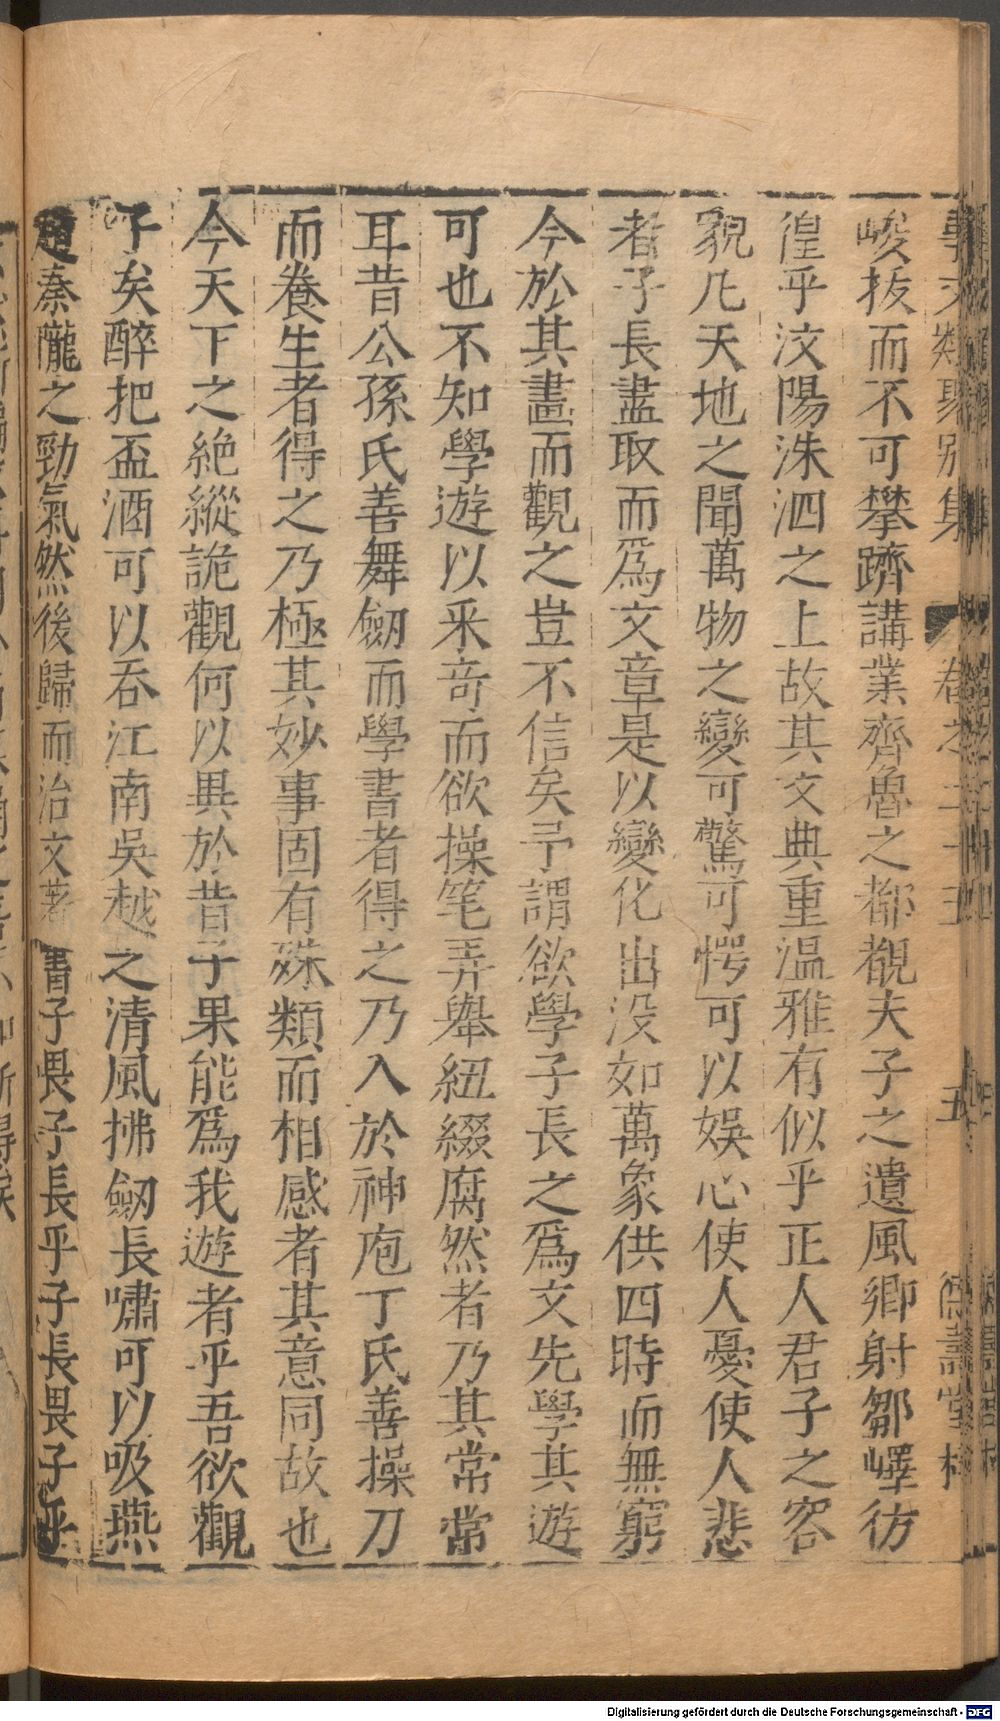 峻拔而不可攀躋講業齊魯之都覩夫子之遺風鄉射鄒嶧彷
徨乎汶陽洙泗之上故其文典重溫雅有似乎正人君子之容
貌凡天地之間萬物之變可驚可愕可以娛心使人憂使人悲
者子長盡取而爲文章是以變化出没如萬象供四時而無窮
今於其書而觀之豈不信矣予謂欲學子長之爲文先學其遊
可也不知學遊以采竒而欲操笔弄舉紐綴腐然者乃其常常
耳昔公孫氏善舞劒而學書者得之乃入於神庖丁氏善操刀
而養生者得之乃極其妙事固有殊類而相感者其意同故也
今天下之絶縱詭觀何以異於昔子果能爲我遊者乎吾欲觀
子矣醉把盃酒可以吞江南吳越之清風拂劒長嘯可以吸燕
趙秦隴之勁氣然後歸而治文著書子畏子長乎子長畏子乎
事文類聚別集 卷之二十五 五
Digitalisierung gefördert durch die Deutsche Forschungsgemeinschaft - DFG